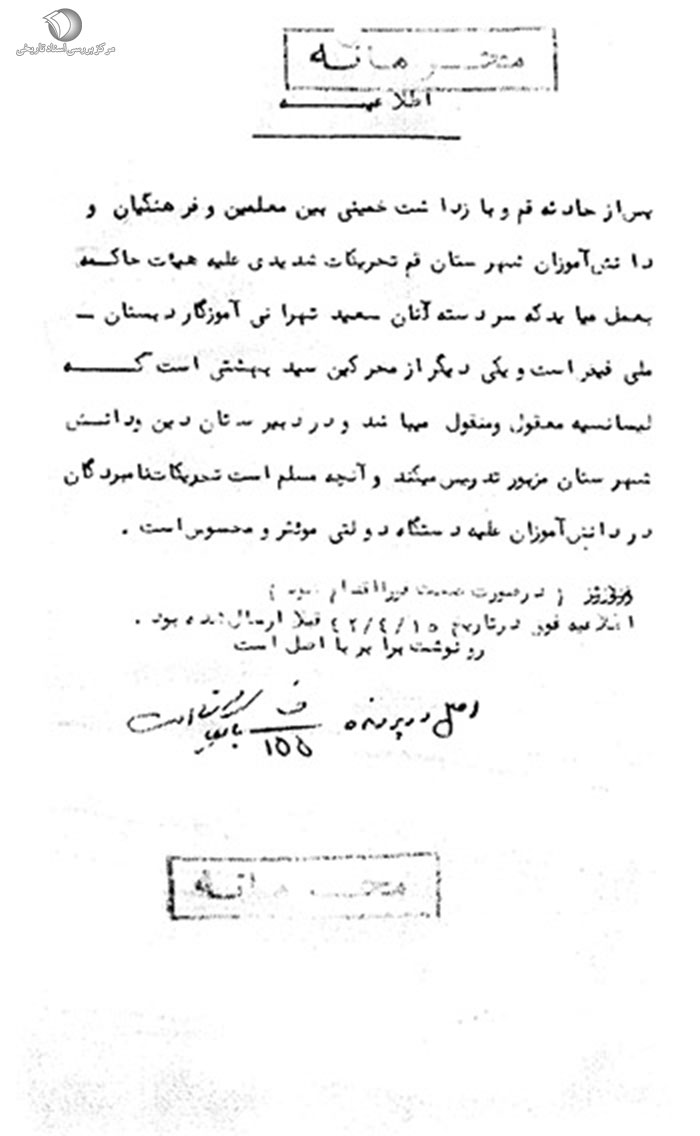 مرکز بررسی اسناد تاریخی
محرمانه
اطلاعیه
پس از حادثه قم و بازداشت خمینی بین معلمین و فرهنگیان و
دانش‌آموزان شهرستان قم تحریکات شدیدی علیه هیئات حاکمه
بعمل میاید که سردسته آنان سعید تهرانی آموزگار دبستان -
ملی فیض است و یکی دیگر از محرکین سید بهشتی است که
لیسانسیه معقول ومنقول میباشد و در دبیرستان دین ودانش
شهرستان مزبور تدریس میکند و آنچه مسلم است تحریکات نامبردگان
در دانش‌آموزان علیه دستگاه دولتی موثر و محسوس است .
( در صورت صحت فورا اقدام شود )
اطلاعیه فوق در تاریخ ۴۲/۴/۱۵ قبلا ارسال شده بود .
رونوشت برابر با اصل است
اصل در پرونده ف ۱۵۵ است
محرمانه